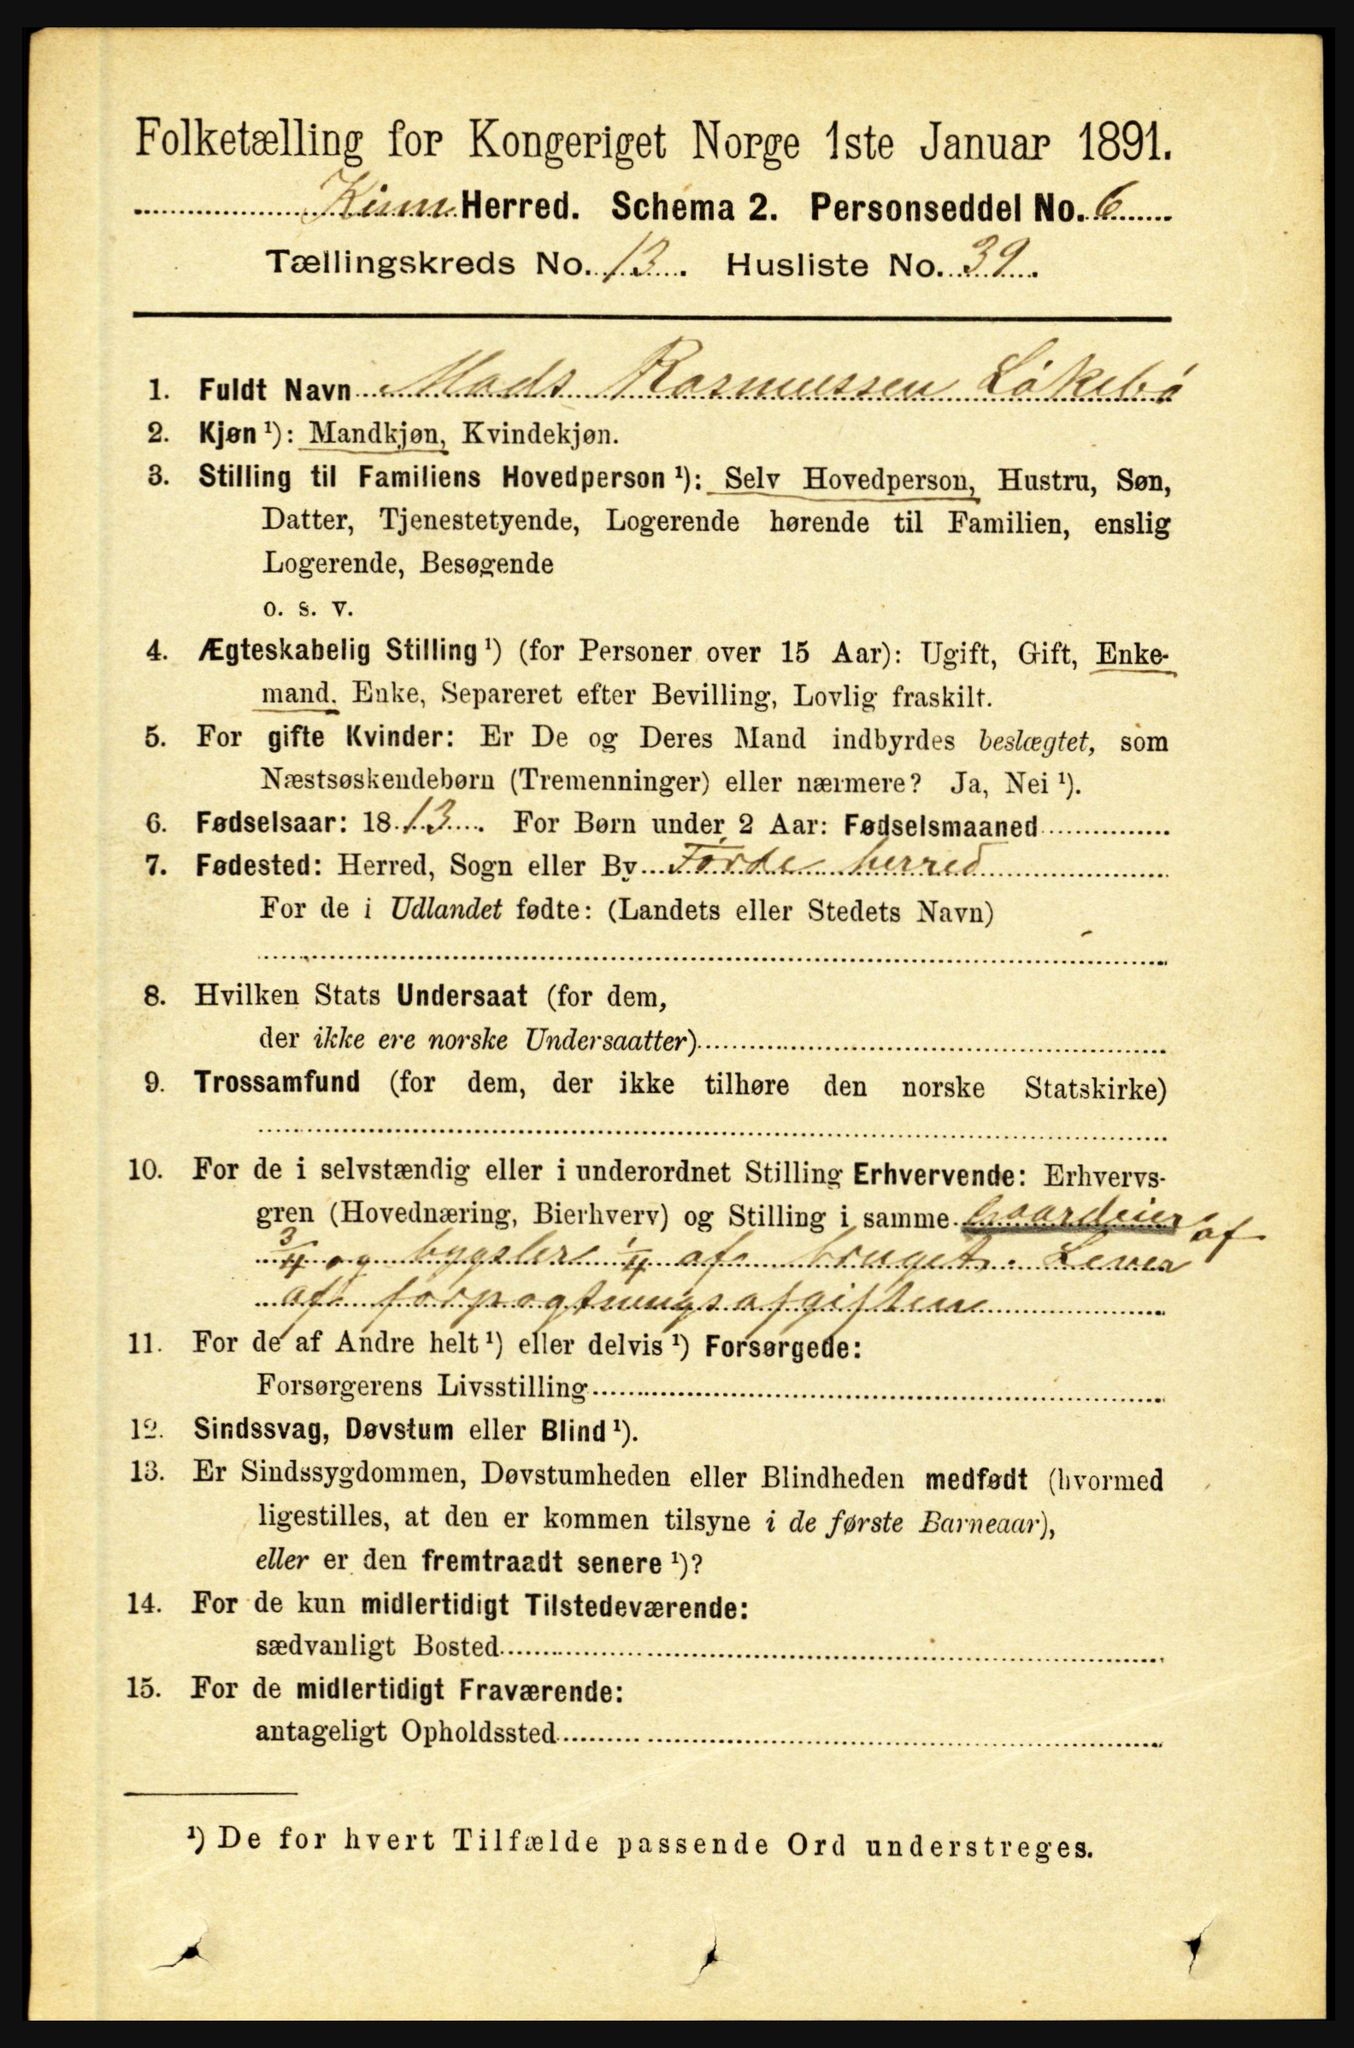 Folketælling for Kongeriget Norge 1ste Januar 1891.
Kinn Herred. Schema 2. Personseddel No. 6
Tællingskreds No. 13. Husliste No. 39.
1. Fuldt Navn Mads Rasmussen Løkebø
2. Kjøn ¹): Mandkjøn, Kvindekjøn.
3. Stilling til Familiens Hovedperson ¹): Selv Hovedperson, Hustru, Søn,
Datter, Tjenestetyende, Logerende hørende til Familien, enslig
Logerende, Besøgende
o. s. v.
4. Ægteskabelig Stilling ¹) (for Personer over 15 Aar): Ugift, Gift, Enke-
mand, Enke, Separeret efter Bevilling, Lovlig fraskilt.
5. For gifte Kvinder: Er De og Deres Mand indbyrdes beslægtet, som
Næstsøskendebørn (Tremenninger) eller nærmere? Ja, Nei ¹).
6. Fødselsaar: 1813. For Børn under 2 Aar: Fødselsmaaned
7. Fødested: Herred, Sogn eller By Førde herred
For de i Udlandet fødte: (Landets eller Stedets Navn)
8. Hvilken Stats Undersaat (for dem,
der ikke ere norske Undersaatter)
9. Trossamfund (for dem, der ikke tilhøre den norske Statskirke)
10. For de i selvstændig eller i underordnet Stilling Erhvervende: Erhvervs-
gren (Hovednæring, Bierhverv) og Stilling i samme Gaardeier af
3/4 og bygsler 1/4 af bruget. Lever
af forpagtningsafgiften
11. For de af Andre helt ¹) eller delvis ¹) Forsørgede:
Forsørgerens Livsstilling
12. Sindssvag, Døvstum eller Blind ¹).
13. Er Sindssygdommen, Døvstumheden eller Blindheden medfødt (hvormed
ligestilles, at den er kommen tilsyne i de første Barneaar),
eller er den fremtraadt senere ¹)?
14. For de kun midlertidigt Tilstedeværende:
sædvanligt Bosted
15. For de midlertidigt Fraværende:
antageligt Opholdssted
¹) De for hvert Tilfælde passende Ord understreges.